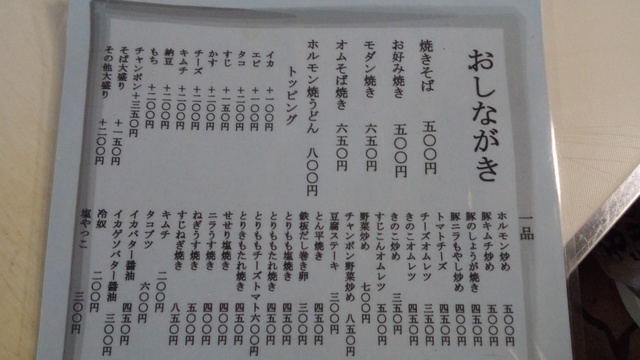 おしながき
焼きそば 五〇〇円
お好み焼き 五〇〇円
モダン焼き 六五〇円
オムそば焼き 六五〇円
ホルモン焼うどん 八〇〇円
トッピング
イカ +一〇〇円
エビ +一〇〇円
タコ +二〇〇円
すじ +一五〇円
かす +二〇〇円
チーズ +二〇〇円
キムチ +二〇〇円
納豆 +一〇〇円
もち +二〇〇円
チャンポン+三五〇円
そば大盛り +一五〇円
その他大盛り +二〇〇円
一品
ホルモン炒め 五〇〇円
豚キムチ炒め 五〇〇円
豚のしょうが焼き 四五〇円
豚ニラもやし炒め 四〇〇円
トマトチーズ 四五〇円
チーズオムレツ 三五〇円
きのこオムレツ 四五〇円
きのこ炒め 三五〇円
すじこんオムレツ 五〇〇円
野菜炒め 七〇〇円
チャンポン野菜炒め 八五〇円
豆腐ステーキ 三〇〇円
とん平焼き 四五〇円
鉄板だし巻き卵 三〇〇円
とりもも塩焼き 四五〇円
とりももたれ焼き 四五〇円
とりももチーズトマト六〇〇円
とりきもたれ焼き 四五〇円
せせり塩焼き 四〇〇円
ニラうす焼き 四五〇円
ねぎうす焼き 五〇〇円
すじねぎ焼き 八五〇円
キムチ 二〇〇円
タコブツ 六〇〇円
イカバター醤油 四五〇円
イカゲソバター醤油 三〇〇円
冷奴 二〇〇円
塩やっこ 三〇〇円